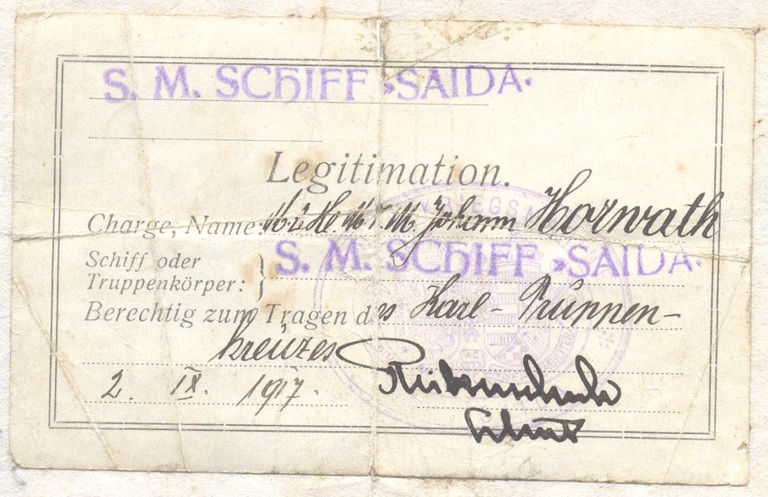 S. M. SCHIFF »SAIDA«
Legitimation.
Charge, Name: Johann Horwath
Schiff oder
Truppenkörper: } S. M. SCHIFF »SAIDA«
Berechtig zum Tragen des Karl-Truppen-
kreuzes
2. IX. 1917.